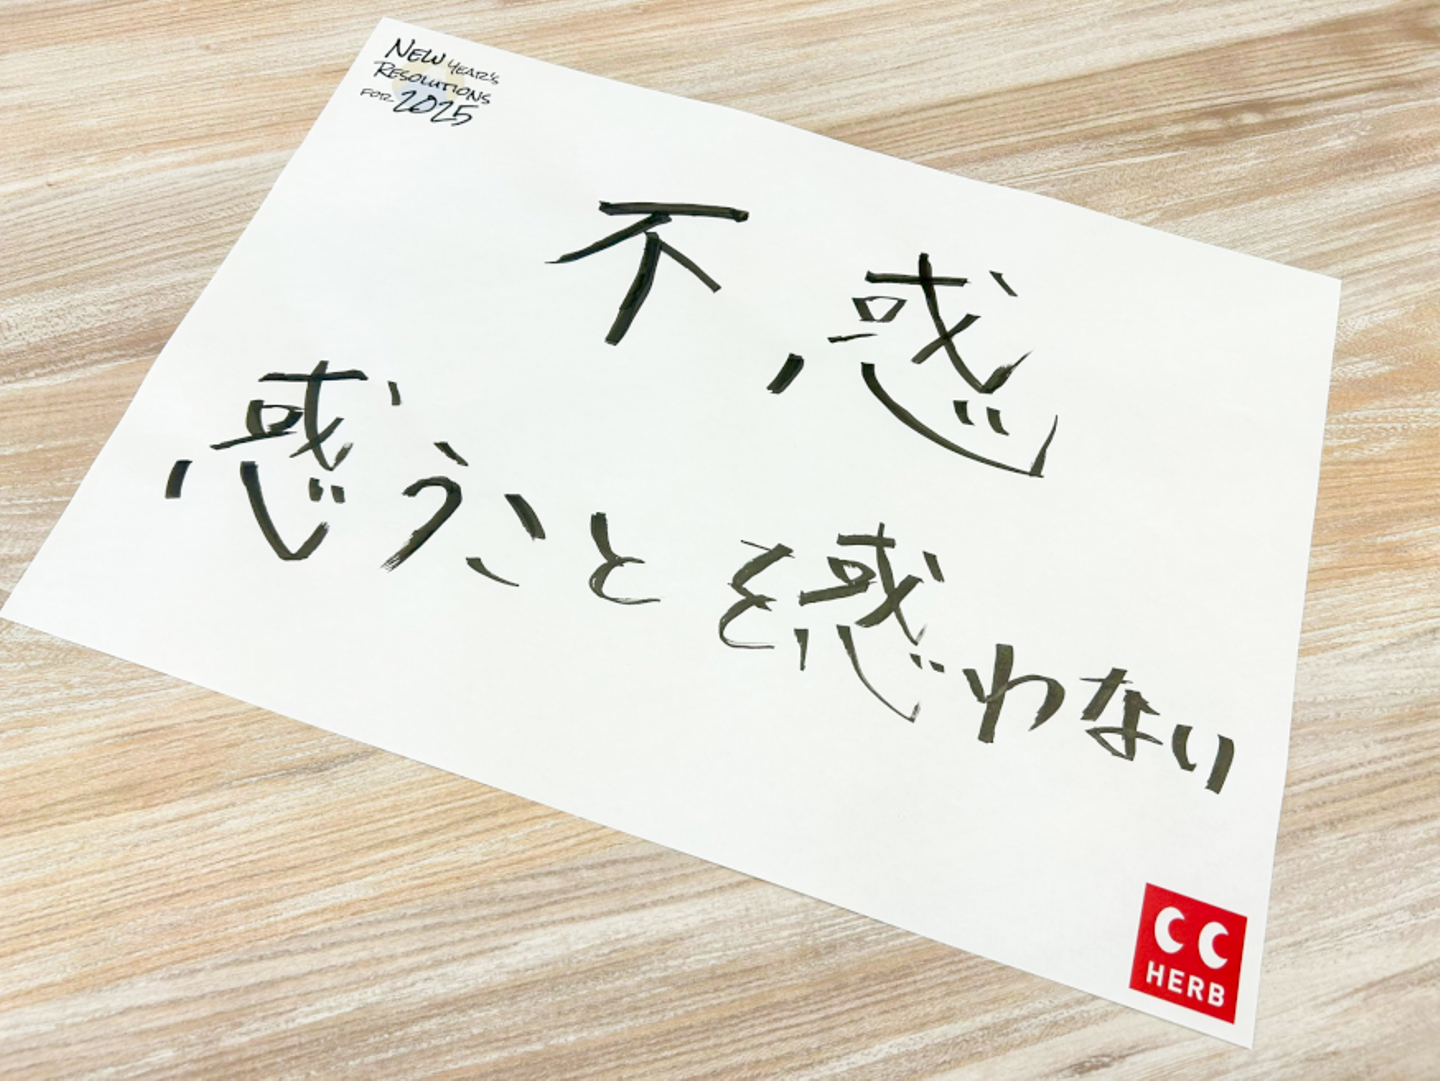 NEW YEAR'S
RESOLUTIONS
FOR 2025
不惑
惑うことを惑わない
CC
HERB